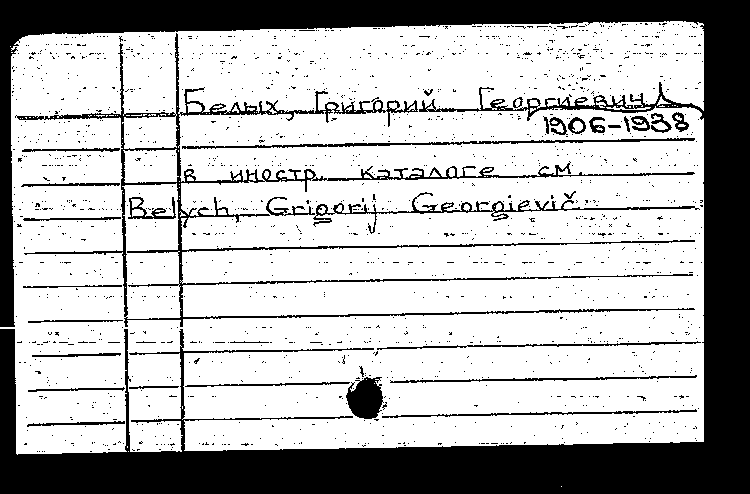 Белых, Григорий Георгиевич
1906-1938
в иностр. каталоге см.
Belych, Grigorij Georgievič